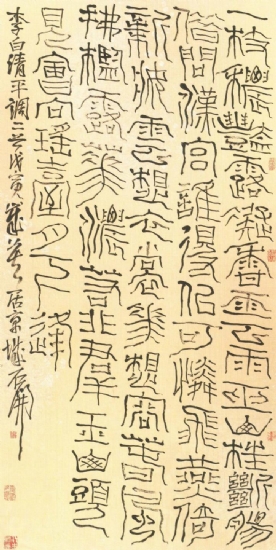 一枝穠豔露凝香雲雨巫山枉斷腸
借問漢宮誰得似可憐飛燕倚
新妝雲想衣裳花想容春風
拂檻露華濃若非群玉山頭
見會向瑤臺月下逢
李白清平調二首戊寅居京城石開